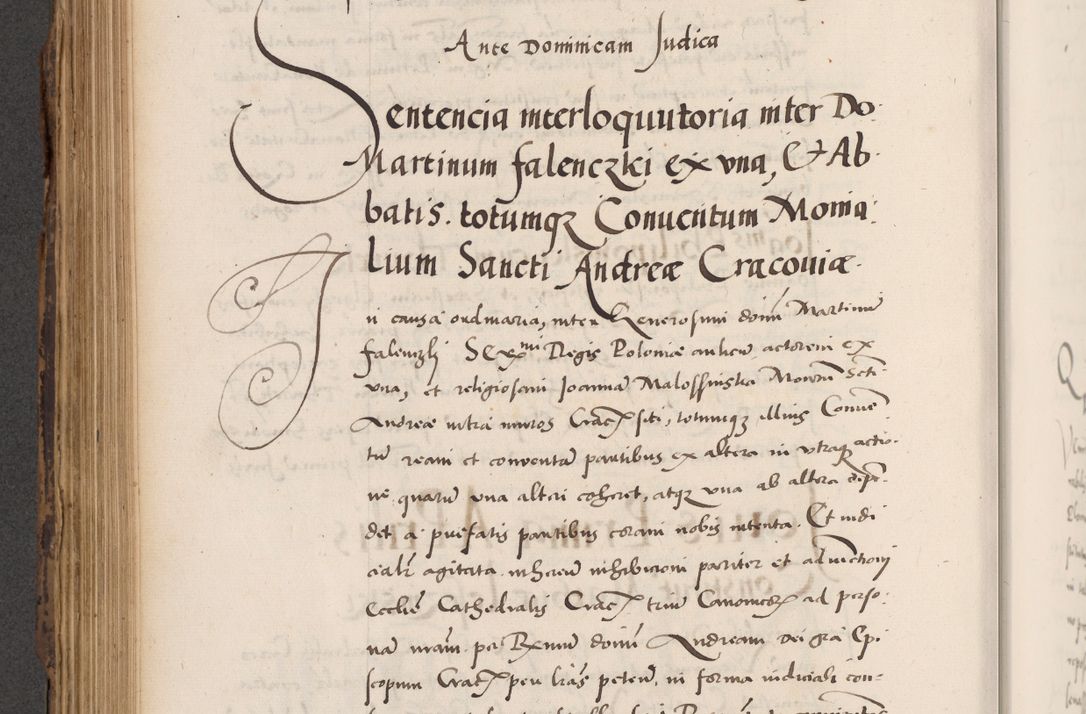 Ante Dominicam Judica
Sentencia interloquutoria inter Do
Martinum Falenczki ex vna, & Ab
batis. totumqz Conuentum Monia
lium Sancti Andreæ Cracouiæ.
In causa ordinaria, inter Generosum domi Martinu
Falenczki Regis Poloniæ aulicu, actorem ex
vna, et religiosam Joanna Malossinska Scti
Andreæ intra muros Crac siti, totumqz illius Conue
tu ream et conventa partibus ex altera in vtraqz actio
ne quaru vna alteri coheret, atqz vna ab altera depe
det a præfatis partibus coram nobis intenta. Et iudi
cialr agitata inheren inhibicioni pariter et
Ecclie Cathedralis Crac triu ad perso
na nram per Rxmum domi Andream dei gra Epi
scopum Crac per lras peten, in forma iudiciali con